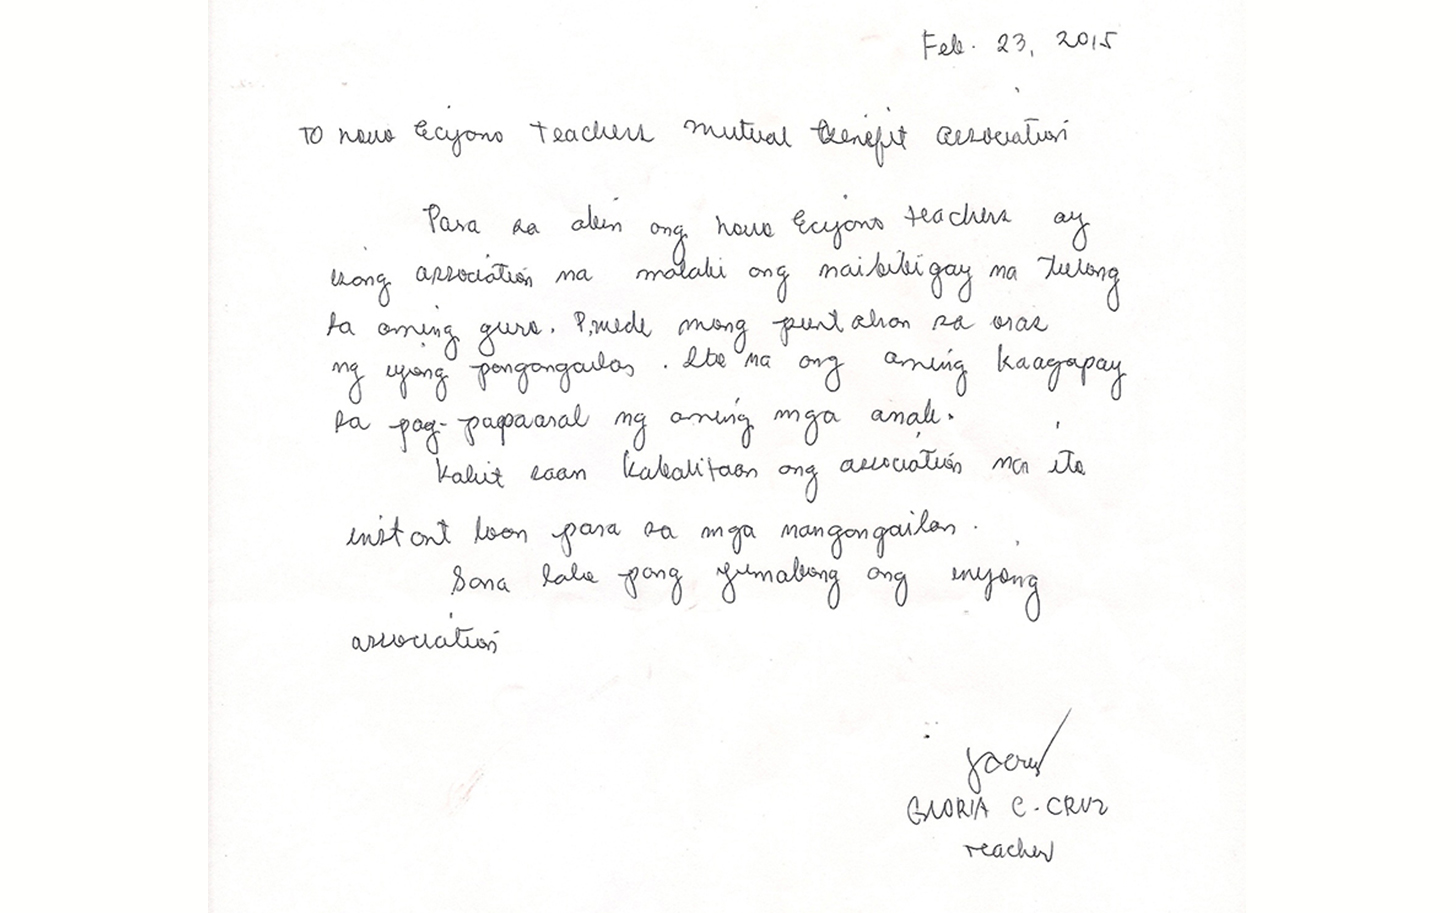 Feb. 23, 2015
TO Novo Ecijano Teachers Mutual Benefit Association
Para sa akin ang Novo Ecijano Teachers ay
isang association na malaki ang naibibigay na tulong
sa aming guro. Pwede mong puntahan sa oras
ng iyong pangangailan. Ito na ang aming kaagapay
sa pag-papaaral ng aming mga anak.
Kahit saan kabalitaan ang association na ito
instant loan para sa mga nangangailan.
Sana lalo pang yumabong ang inyong
association
GLORIA C. CRUZ
Teacher